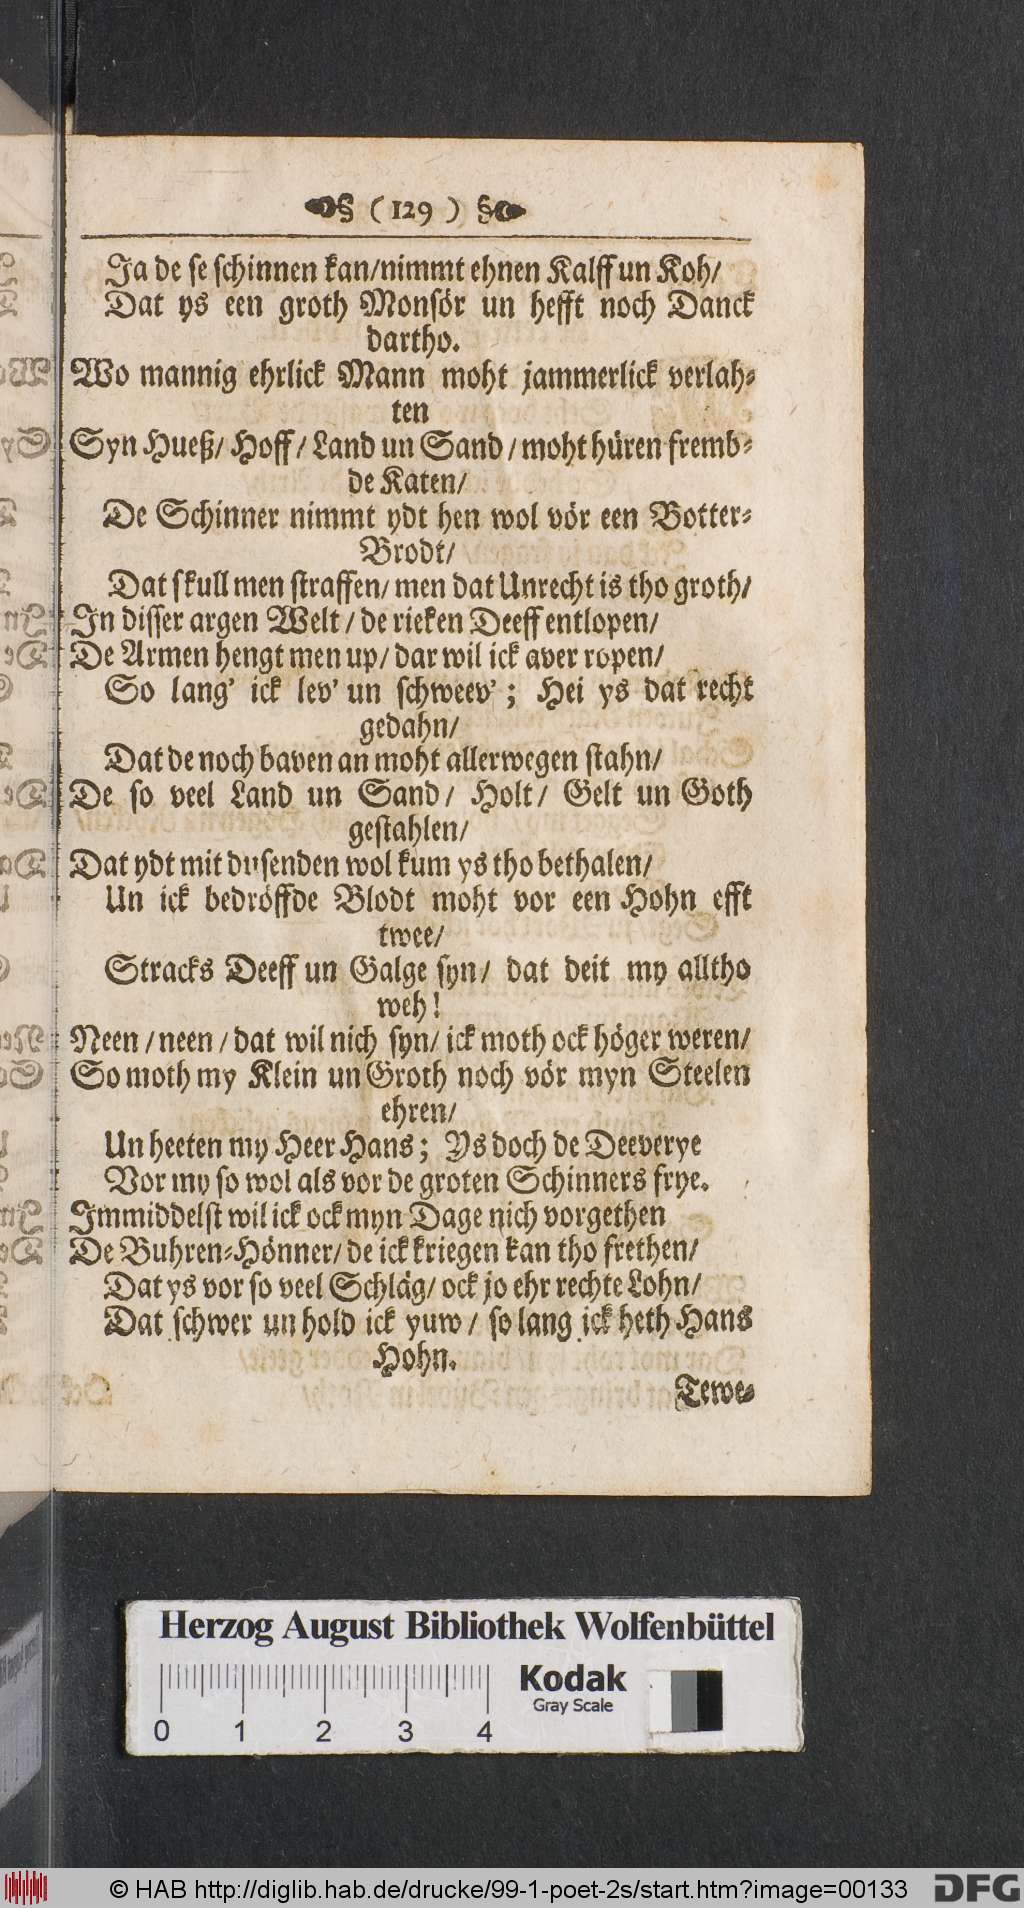 ( 129 )
Ja de se schinnen kan/nimmt ehnen Kalff un Koh/
Dat ys een groth Monsör un hefft noch Danck
dartho.
Wo mannig ehrlick Mann moht jammerlick verlah-
ten
Syn Hueß/ Hoff/ Land un Sand/ moht hüren fremb-
de Katen/
De Schinner nimmt ydt hen wol vör een Botter-
Brodt/
Dat skull men straffen/ men dat Unrecht is tho groth/
In disser argen Welt/ de rieken Deeff entlopen/
De Armen hengt men up/ dar wil ick aver ropen/
So lang' ick lev' un schweev'; Hei ys dat recht
gedahn/
Dat de noch baven an moht allerwegen stahn/
De so veel Land un Sand/ Holt/ Gelt un Goth
gestahlen/
Dat ydt mit dusenden wol kum ys tho bethalen/
Un ick bedröffde Blodt moht vor een Hohn efft
twee/
Stracks Deeff un Galge syn/ dat deit my alltho
weh!
Neen/neen/dat wil nich syn/ ick moth ock höger weren/
So moth my Klein un Groth noch vör myn Steelen
ehren/
Un heeten my Heer Hans; Ys doch de Deeverye
Vor my so wol als vor de groten Schinners frye.
Immiddelst wil ick ock myn Dage nich vorgethen
De Buhren-Hönner/ de ick kriegen kan tho frethen/
Dat ys vor so veel Schläg/ ock jo ehr rechte Lohn/
Dat schwer un hold ick yuw/ so lang ick heth Hans
Hohn.
Tewe-
Herzog August Bibliothek Wolfenbüttel
Kodak
Gray Scale
0 1 2 3 4
© HAB http://diglib.hab.de/drucke/99-1-poet-2s/start.htm?image=00133
DFG